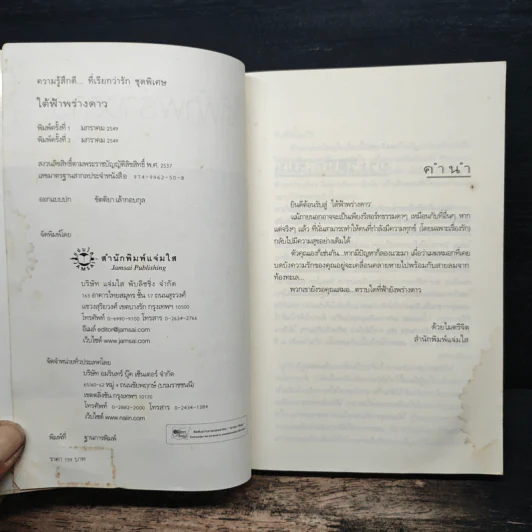 ความรู้สึกดี... ที่เรียกว่ารัก ชุดพิเศษ
ใต้ฟ้าพร่างดาว
พิมพ์ครั้งที่ 1 มกราคม 2549
พิมพ์ครั้งที่ 2 มกราคม 2549
สงวนลิขสิทธิ์ตามพระราชบัญญัติลิขสิทธิ์ พ.ศ. 2537
เลขมาตรฐานสากลประจำหนังสือ 974-9942-50-8
ออกแบบปก ชัดติยา เล้ากอบกุล
จัดพิมพ์โดย
สำนักพิมพ์แจ่มใส
Jamsai Publishing
บริษัท แจ่มใส พับลิชชิ่ง จำกัด
163 อาคารไทยสมุทร ชั้น 17 ถนนสุรวงศ์
แขวงสุริยวงศ์ เขตบางรัก กรุงเทพฯ 10500
โทรศัพท์ โทรสาร 0-2634-2766
อีเมล์ editor@jamsai.com
เว็บไซต์ www.jamsai.com
จัดจำหน่ายทั่วประเทศโดย
บริษัท อมรินทร์ บุ๊ค เซ็นเตอร์ จำกัด
หมู่ 4 ถนนชัยพฤกษ์ (บรมราชชนนี)
เขตตลิ่งชัน กรุงเทพฯ 10170
โทรศัพท์ 0-2882-2000 โทรสาร
เว็บไซต์ www.naiin.com
พิมพ์ที่ ฐานการพิมพ์
ราคา 159 บาท
คำนำ
ยินดีต้อนรับสู่ 'ใต้ฟ้าพร่างดาว'
แม้ภายนอกอาจจะเป็นเพียงรีสอร์ทธรรมดาๆ เหมือนกับที่อื่นๆ หาก
แต่จริงๆ แล้ว ที่นี่สามารถทำให้คนที่กำลังมีความทุกข์ (โดยเฉพาะเรื่องรัก)
กลับไปมีความสุขอย่างเดิมได้
ตัวคุณเองก็เช่นกัน...หากมีปัญหาก็ลองแวะมา เผื่อว่าเมฆหมอกที่เคย
บดบังความรักของคุณอยู่จะเคลื่อนคลายหายไปพร้อมกับสายลมจาก
ท้องทะเล...
พวกเรายังรอคุณเสมอ...ตราบใดที่ฟ้ายังพร่างดาว
ด้วยไมตรีจิต
สำนักพิมพ์แจ่มใส